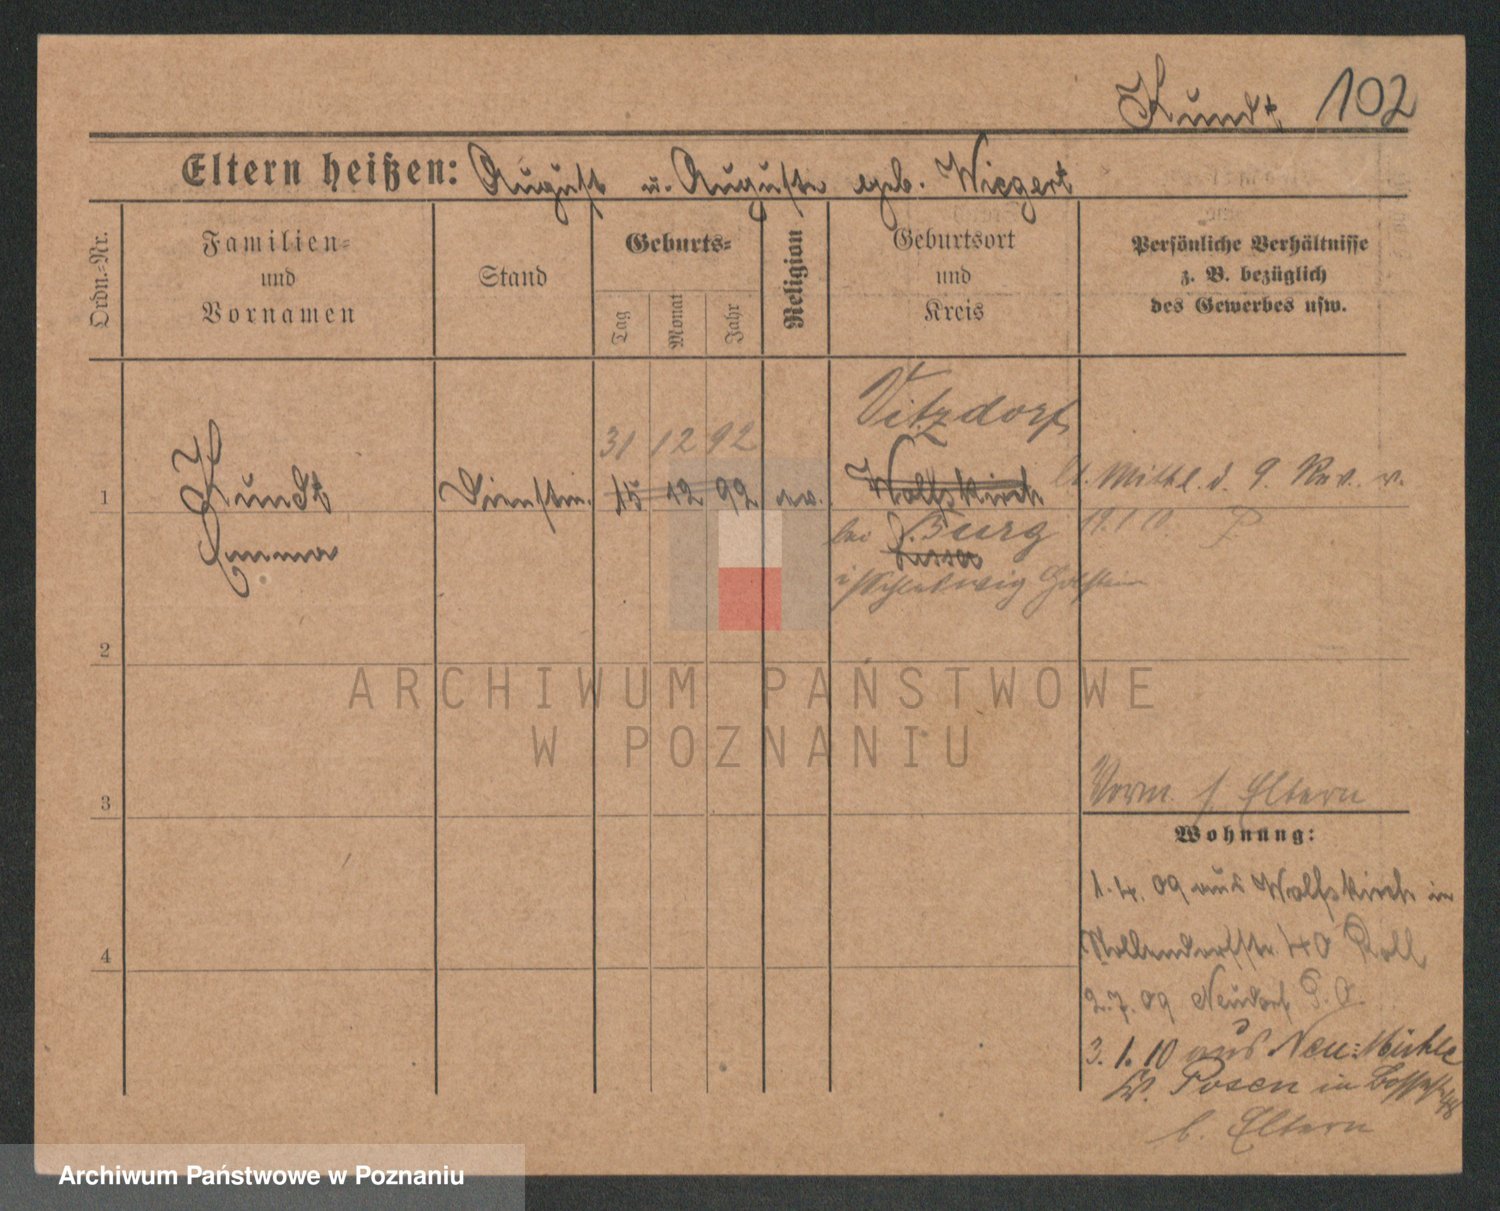 Kundt 102
Eltern heißen: August u. Auguste geb. Wiegert
Ordn.-Nr.
Familien-
und
Vornamen
Stand
Geburts-
Tag
Monat
Jahr
Religion
Geburtsort
und
Kreis
Persönliche Verhältnisse
z. B. bezüglich
des Gewerbes usw.
Vitzdorf
31 12 92
1 Kundt Dienstm. 15 12 92 ev. Wolfskirch lt. Mitthl. d. 9. Rev. v.
bei Burg 19.1.10.
Emma Lissa
i/Schleswig Holstein
2
ARCHIWUM PAŃSTWOWE
W POZNANIU
Vorm. s. Eltern
3
Wohnung:
1.4.09 aus Wolfskirch in
Nollendorfstr. 40
4
2.7.09 Neudorf
3.1.10 aus Neu-Mühle
Kr. Posen in
b. Eltern
Archiwum Państwowe w Poznaniu